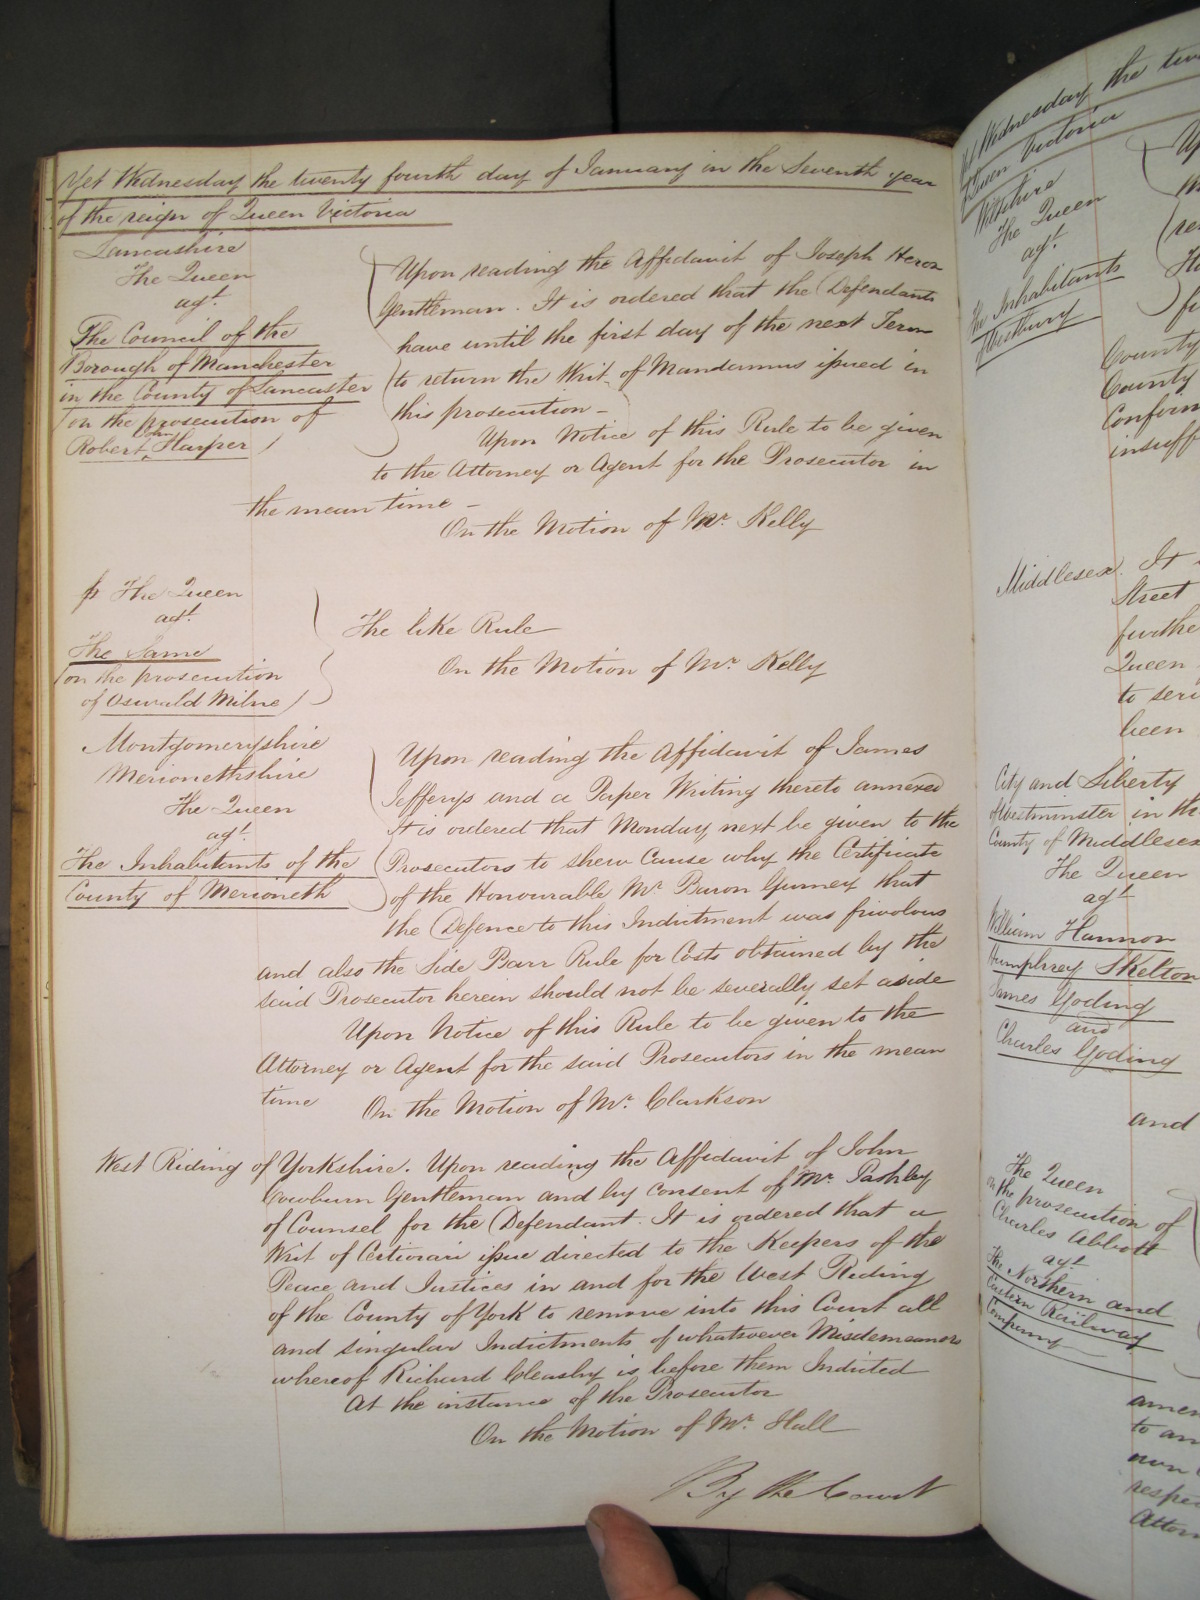 Yet Wednesday the twenty fourth day of January in the Seventh year
of the reign of Queen Victoria
Lancashire
The Queen
agt.
The Council of the
Borough of Manchester
in the County of Lancaster
(on the prosecution of
Robert Harper)
Upon reading the Affidavit of Joseph Heron
Gentleman. It is ordered that the Defendants
have until the first day of the next Term
to return the Writ of Mandamus issued in
this prosecution –
Upon Notice of this Rule to be given
to the Attorney or Agent for the Prosecutor in
the mean time –
On the Motion of Mr. Kelly
The Queen
agt.
The Same
(on the prosecution
of Oswald Milne)
The like Rule
On the Motion of Mr. Kelly
Montgomeryshire
Merionethshire
The Queen
agt.
The Inhabitants of the
County of Merioneth
Upon reading the Affidavit of James
Jefferys and a Paper Writing thereto annexed
It is ordered that Monday next be given to the
Prosecutors to shew Cause why the Certificate
of the Honourable Mr. Baron Gurney that
the Defence to this Indictment was frivolous
and also the Side Barr Rule for Costs obtained by the
said Prosecutor herein should not be severally set aside
Upon Notice of this Rule to be given to the
Attorney or Agent for the said Prosecutors in the mean
time
On the Motion of Mr. Clarkson
West Riding of Yorkshire. Upon reading the Affidavit of John
Cowburn Gentleman and by consent of Mr. Pashley
of Counsel for the Defendant. It is ordered that a
Writ of Certiorari issue directed to the Keepers of the
Peace and Justices in and for the West Riding
of the County of York to remove into this Court all
and singular Indictments of whatsoever Misdemeanors
whereof Richard Cleasby is before them Indicted
At the instance of the Prosecutor
On the Motion of Mr. Hall
By the Court
Yet Wednesday the
Queen Victoria
Wiltshire
The Queen
agt.
The Inhabitants
of Westbury
County
County
Conform
insuff
Middlesex. It
Street
further
Queen
to
been
City and Liberty
of Westminster in the
County of Middlesex
The Queen
agt
William Hannon
Humphrey Skelton
James Goding
and
Charles Goding
and
The Queen
on the prosecution of
Charles Abbott
agt
The Northern and
Eastern Railway
Company
amen
to an
own
respe
Attorn